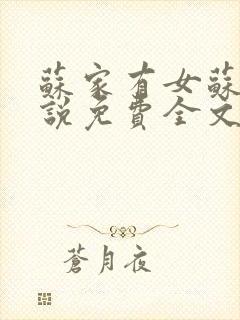 蘇家有女蘇
說免費全文
蒼月夜